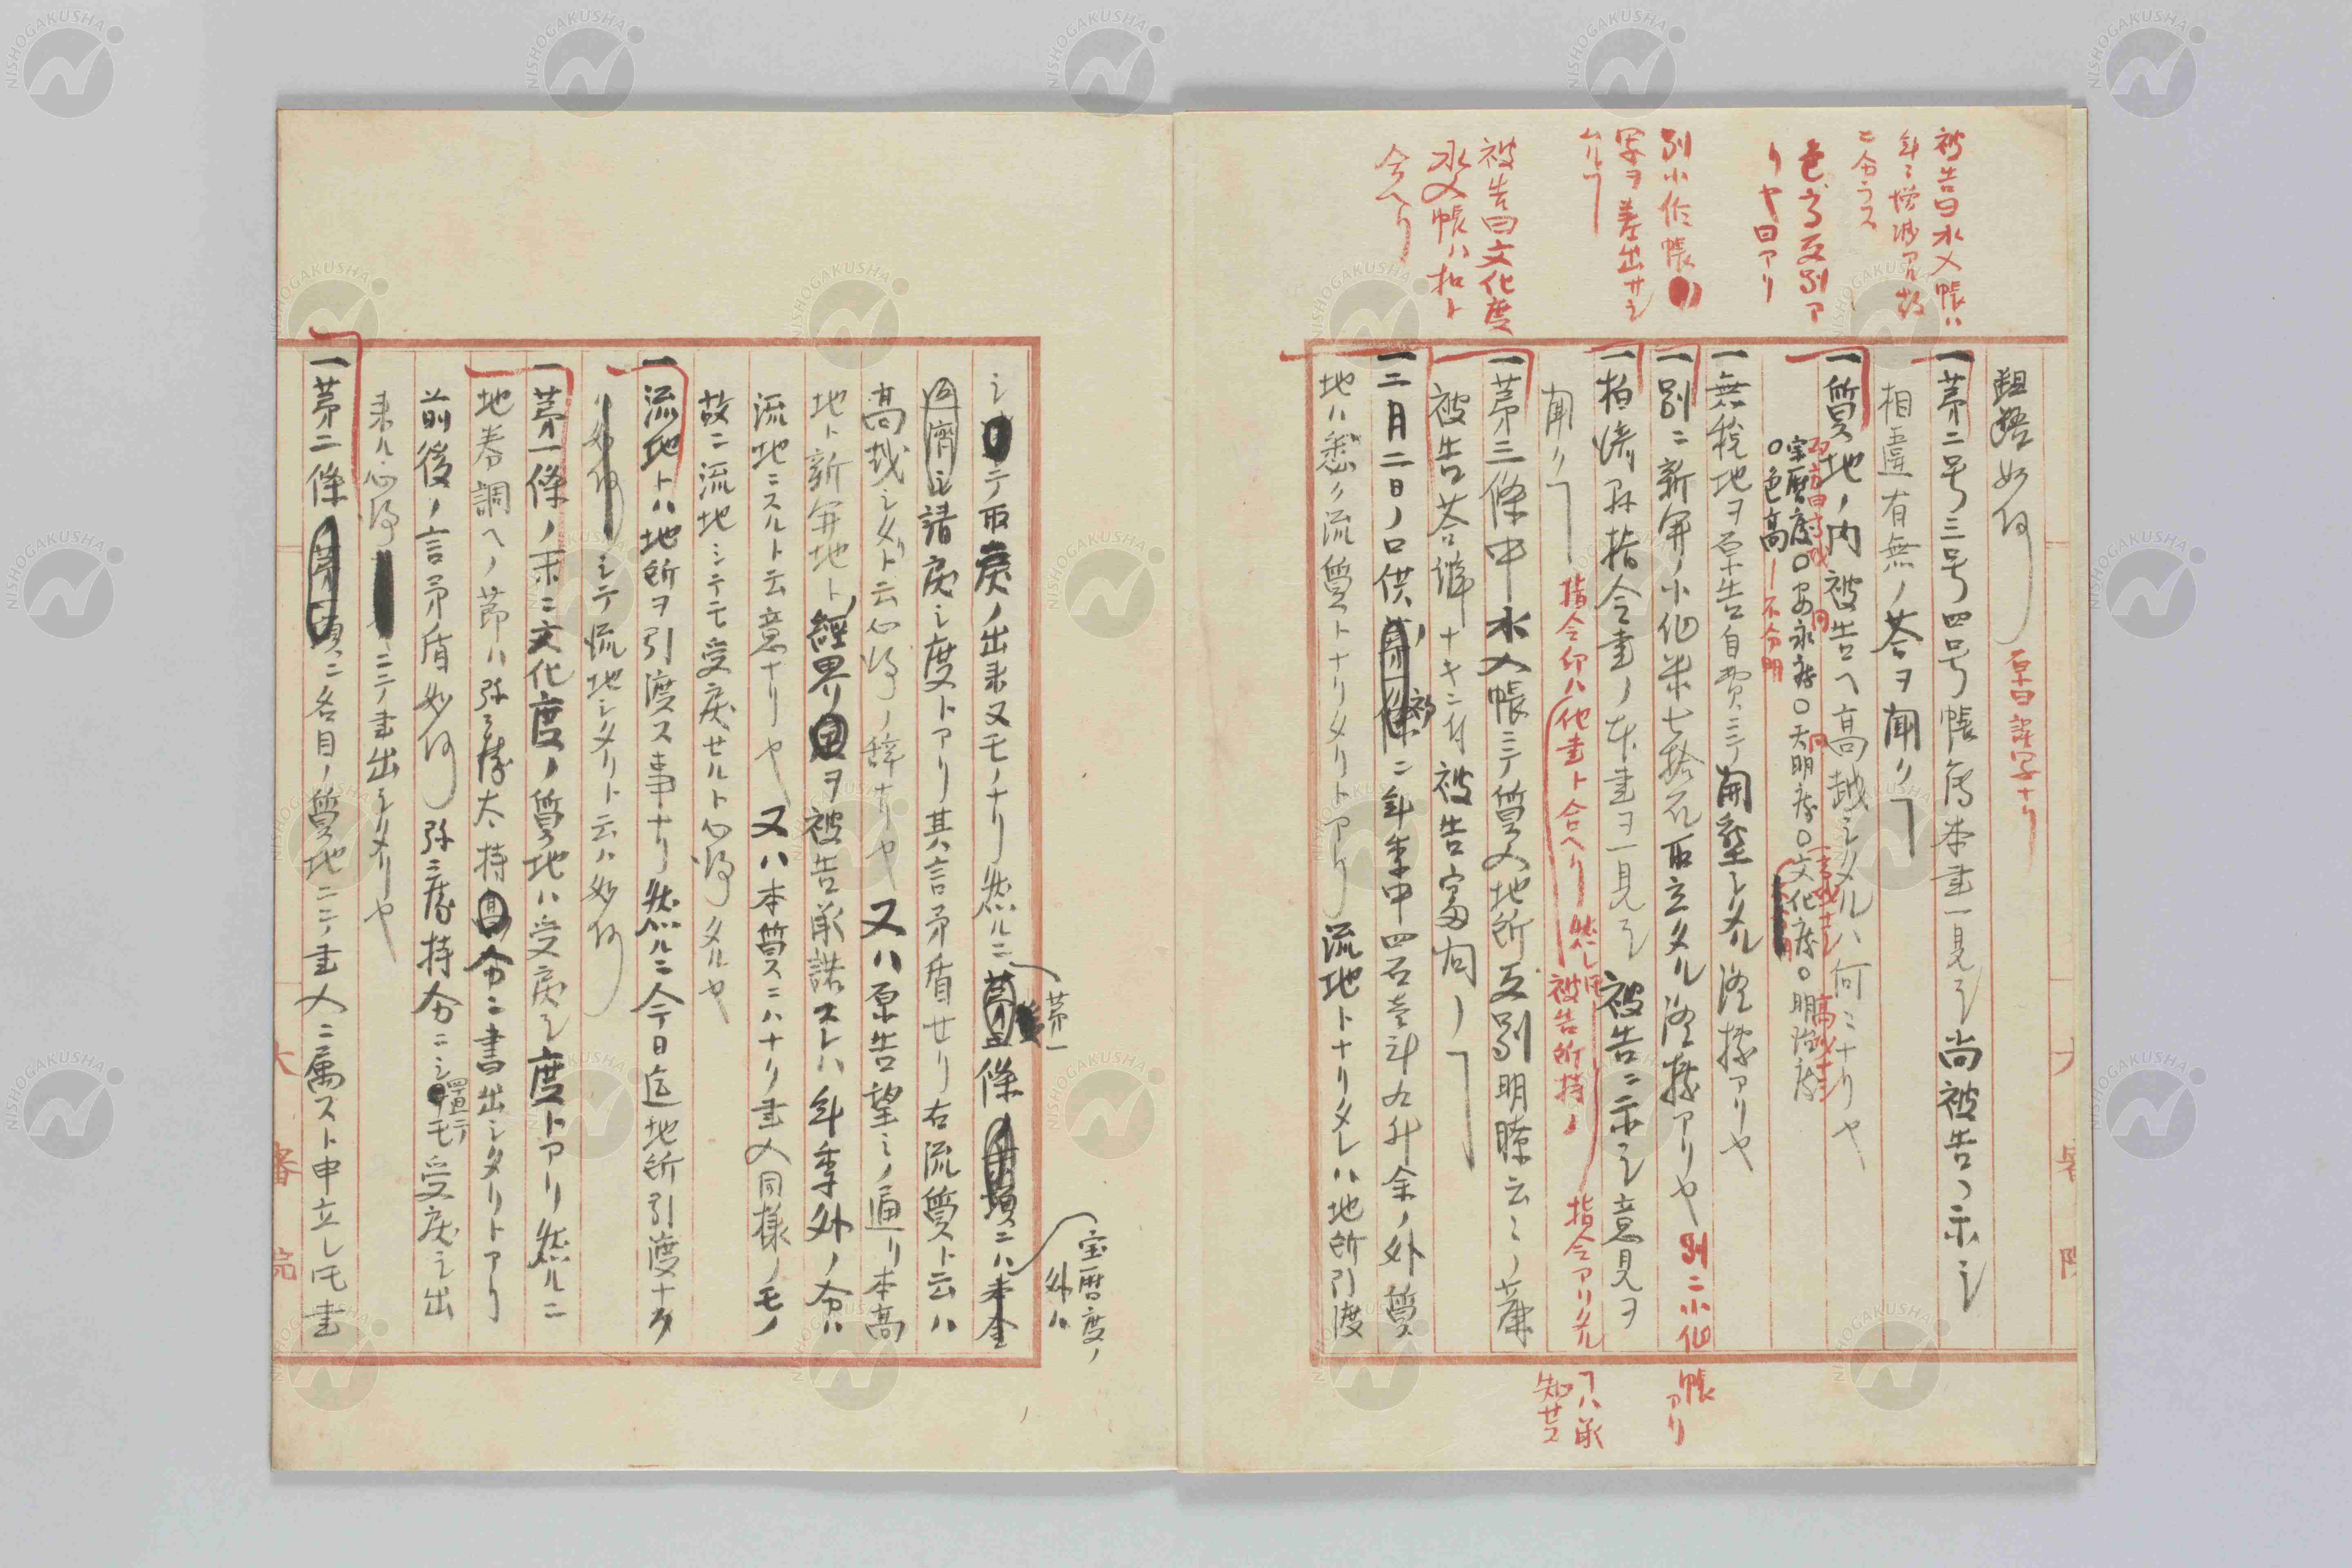 被告曰水入帳ハ
年ニ増減アル故
ニ合ラス
色高反別ア
リヤ曰アリ
別小作帳
写ヲ差出サシ
ムルヿ
被告曰文化度
水入帳ハ扣ト
合ヘリ
齟齬如何
原曰誤写ナリ
一第二号三号四号帳傳本書一見シ尚被告ヘ示シ
相違有無ノ答ヲ聞クヿ
一質地ノ内被告ヘ高越シタルハ何ニナリヤ
宝暦度〇安永度〇天明度〇文化度〇明治度
〇色高
不分明
一無税地ヲ原告自費ニテ開墾シタル證據アリヤ
一別ニ新開ノ小作米七拾石取立タル證據アリヤ
別ニ小作帳アリ
一柏崎県指令書ノ本書ヲ一見シ被告ニ示シ意見ヲ
聞クヿ
指令印ハ他書ト合ヘリ然レ𪜈被告所持ノ
指令アリタル
ヿハ承
知セス
一第三條中水入帳ニテ質入地所反別明瞭云々ノ廉
被告答辨十キニ付被告審問ノヿ
一二月二日ノ口供ニ年季中四石壱斗九升余ノ外質
地ハ悉ク流質トナリタリトアリ流地トナリタレハ地所引渡
宝暦度ノ
外ハ
第一
シテ取戻ノ出来又モノナリ然ルニ條ニハ本金
返済シ請戻シ度トアリ其言矛盾セリ右流質ト云ハ
高越シタリト云心得ノ辞ナルヤ又ハ原告望ミノ通リ本高
地ト新開地ト經界ヲ被告承諾スレハ年季外ノ分ハ
流地ニスルト云意ナリヤ又ハ本質ニハナク書入同様ノモノ
故ニ流地ニシテモ受戻セルト心得タルヤ
一流地トハ地所ヲ引渡ス事ナリ然ルニ今日迄地所引渡ナク
シテ流地シタリト云ハ如何
一第一條ノ末ニ文化度ノ質地ハ受戻シ度トアリ然ルニ
地券調ヘノ節ハ弥三彦太持分ニ書出シタリトアリ
前後ノ言矛盾如何弥三彦持分ニシ還テモ受戻シ出
来ル心得ニテ書出シタリヤ
一第二條ニ名目ノ質地ニテ書入ニ属スト申立レ𪜈書